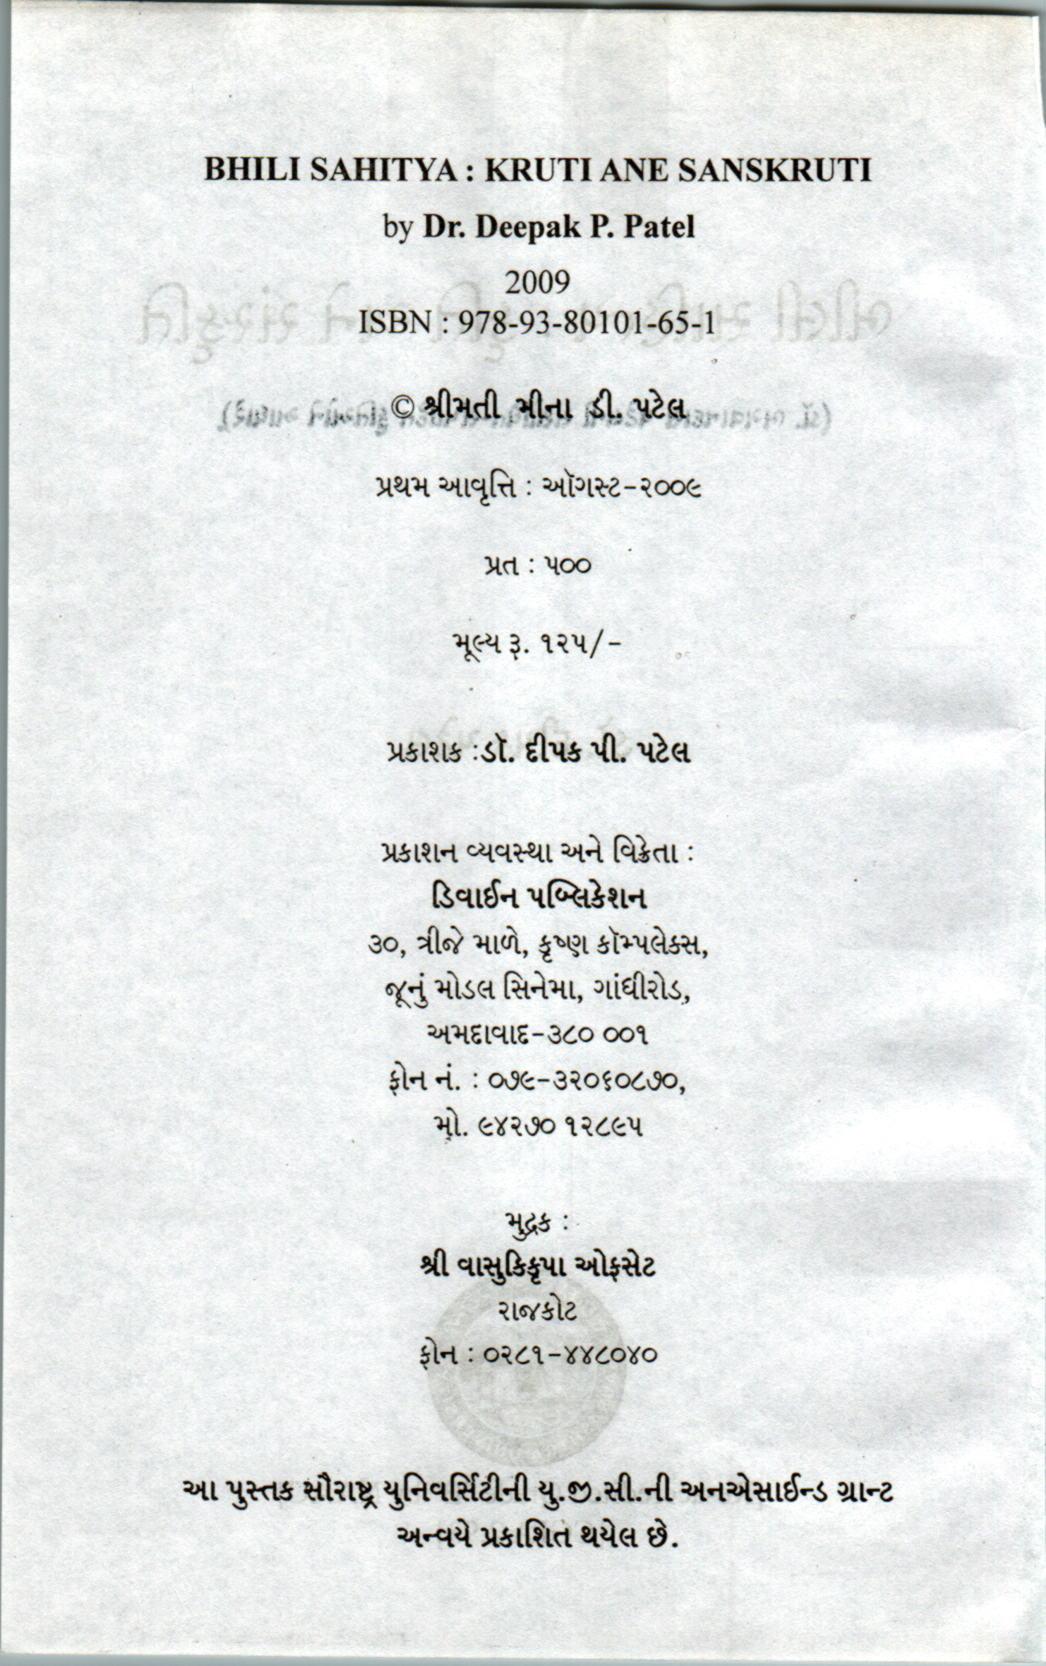 BHILI SAHITYA : KRUTI ANE SANSKRUTI
by Dr. Deepak P. Patel
2009
ISBN : 978-93-80101-65-1
© શ્રીમતી મીના ડી. પટેલ
પ્રથમ આવૃત્તિ : ઑગસ્ટ-૨૦૦૯
પ્રત : ૫૦૦
મૂલ્ય રૂ. ૧૨૫/-
પ્રકાશક :ડૉ. દીપક પી. પટેલ
પ્રકાશન વ્યવસ્થા અને વિક્રેતા :
ડિવાઈન પબ્લિકેશન
૩૦, ત્રીજે માળે, કૃષ્ણ કૉમ્પલેક્સ,
જૂનું મોડલ સિનેમા, ગાંધીરોડ,
અમદાવાદ-૩૮૦ ૦૦૧
ફોન નં. : ૦૭૯-૩૨૦૬૦૮૭૦,
મો. ૯૪૨૭૦ ૧૨૮૯૫
મુદ્રક :
શ્રી વાસુકિકૃપા ઓફસેટ
રાજકોટ
ફોન : ૦૨૮૧-૪૪૮૦૪૦
આ પુસ્તક સૌરાષ્ટ્ર યુનિવર્સિટીની યુ.જી.સી.ની અનએસાઈન્ડ ગ્રાન્ટ
અન્વયે પ્રકાશિત થયેલ છે.